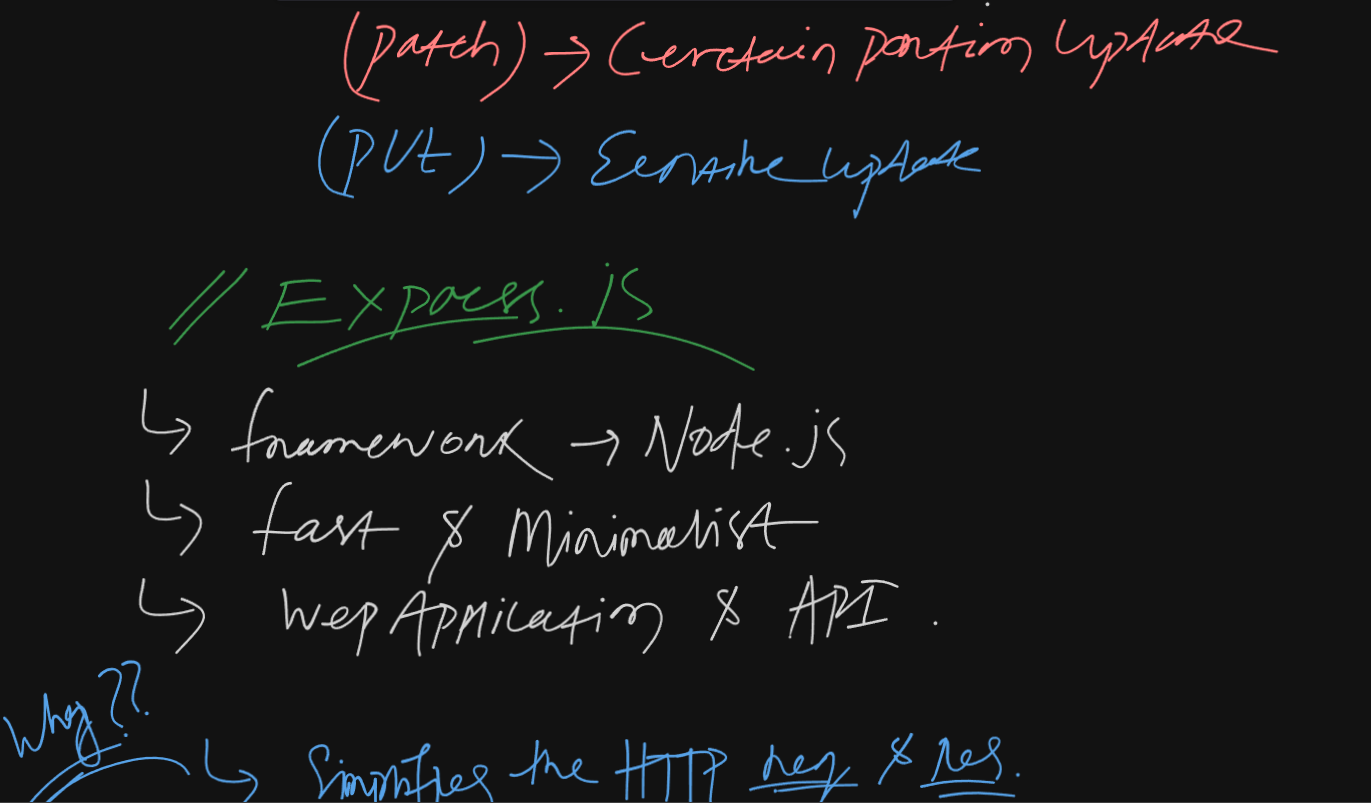 (patch) → Certain portion Update
(PUT) → Update
// Express.js
↳ framework → Node.js
↳ fast & Minimalist
↳ Web Application & API.
Why??
↳ Simplifies the HTTP req & res.